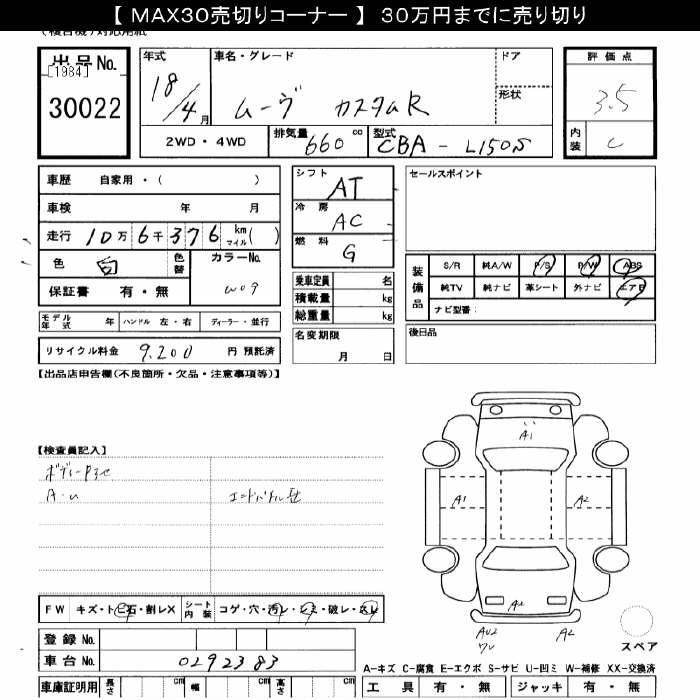 【 MAX30売切りコーナー 】 30万円までに売り切り
出品No. [1984] 30022
年式 18/4月
車名・グレード ムーヴ カスタムR
ドア
形状
評価点 3.5
内装 C
2WD・4WD
排気量 660 cc
型式 CBA-L150S
車歴 自家用・( )
車検 年 月
走行 10万6千376 km マイル( )
色 白 色替
カラーNo. W09
保証書 有・無
シフト AT
冷房 AC
燃料 G
乗車定員 名
積載量 kg
総重量 kg
セールスポイント
装備品 S/R 純A/W P/S P/W ABS
純TV 純ナビ 革シート 外ナビ エアB
ナビ型番:
モデル年式 年 ハンドル 左・右 ディーラー・並行
リサイクル料金 9,200 円 預託済
名変期限 月 日
後日品
【出品店申告欄(不良箇所・欠品・注意事項等)】
【検査員記入】
A・U
A1
A1
A2
A2
A2
FW キズ・ト ビ石・割レX
シート内装 コゲ・穴・汚レ・シミ・破レ・スレ
登録No.
車台No. 0292383
スペア
A-キズ C-腐食 E-エクボ S-サビ U-凹ミ W-補修 XX-交換済
車庫証明用 長さ cm 幅 cm 高さ cm
工具 有・無 ジャッキ 有・無